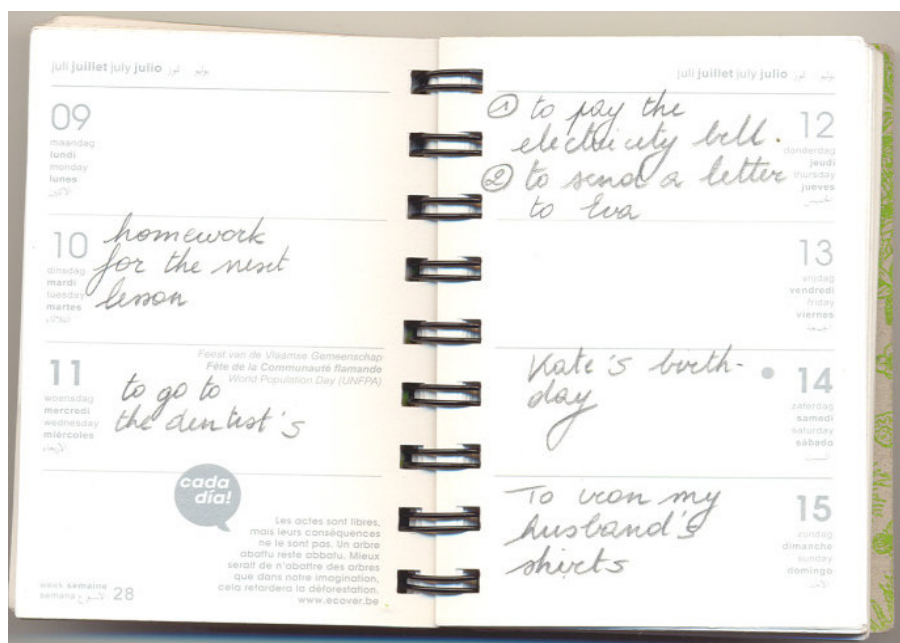 juli juillet july julio تموز يوليو
09
maandag
lundi
monday
lunes
الاثنين
10
dinsdag
mardi
tuesday
martes
الثلاثاء
homework
for the next
lesson
11
woensdag
mercredi
wednesday
miércoles
الأربعاء
Feest van de Vlaamse Gemeenschap
Fête de la Communauté flamande
World Population Day (UNFPA)
to go to
the dentist's
cada
día!
Les actes sont libres,
mais leurs conséquences
ne le sont pas. Un arbre
abattu reste abbatu. Mieux
serait de n'abattre des arbres
que dans notre imagination,
cela retardera la déforestation.
www.ecover.be
week semaine
semana أسبوع 28
juli juillet july julio تموز يوليو
① to pay the
electricity bill.
② to send a letter
to Eva
12
donderdag
jeudi
thursday
jueves
الخميس
13
vrijdag
vendredi
friday
viernes
الجمعة
Kate's birth-
day
14
zaterdag
samedi
saturday
sábado
السبت
To iron my
husband's
shirts
15
zondag
dimanche
sunday
domingo
الأحد